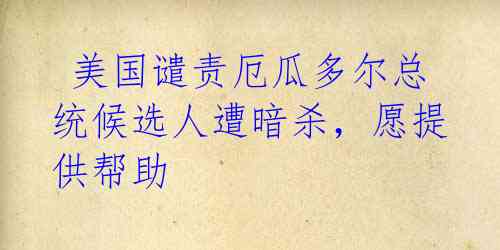 美国谴责厄瓜多尔总
统候选人遭暗杀，愿提
供帮助